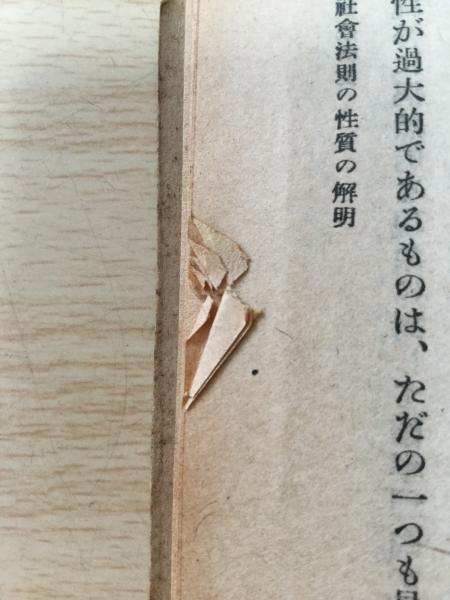 性が過大的であるものは、ただの一つも
社會法則の性質の解明